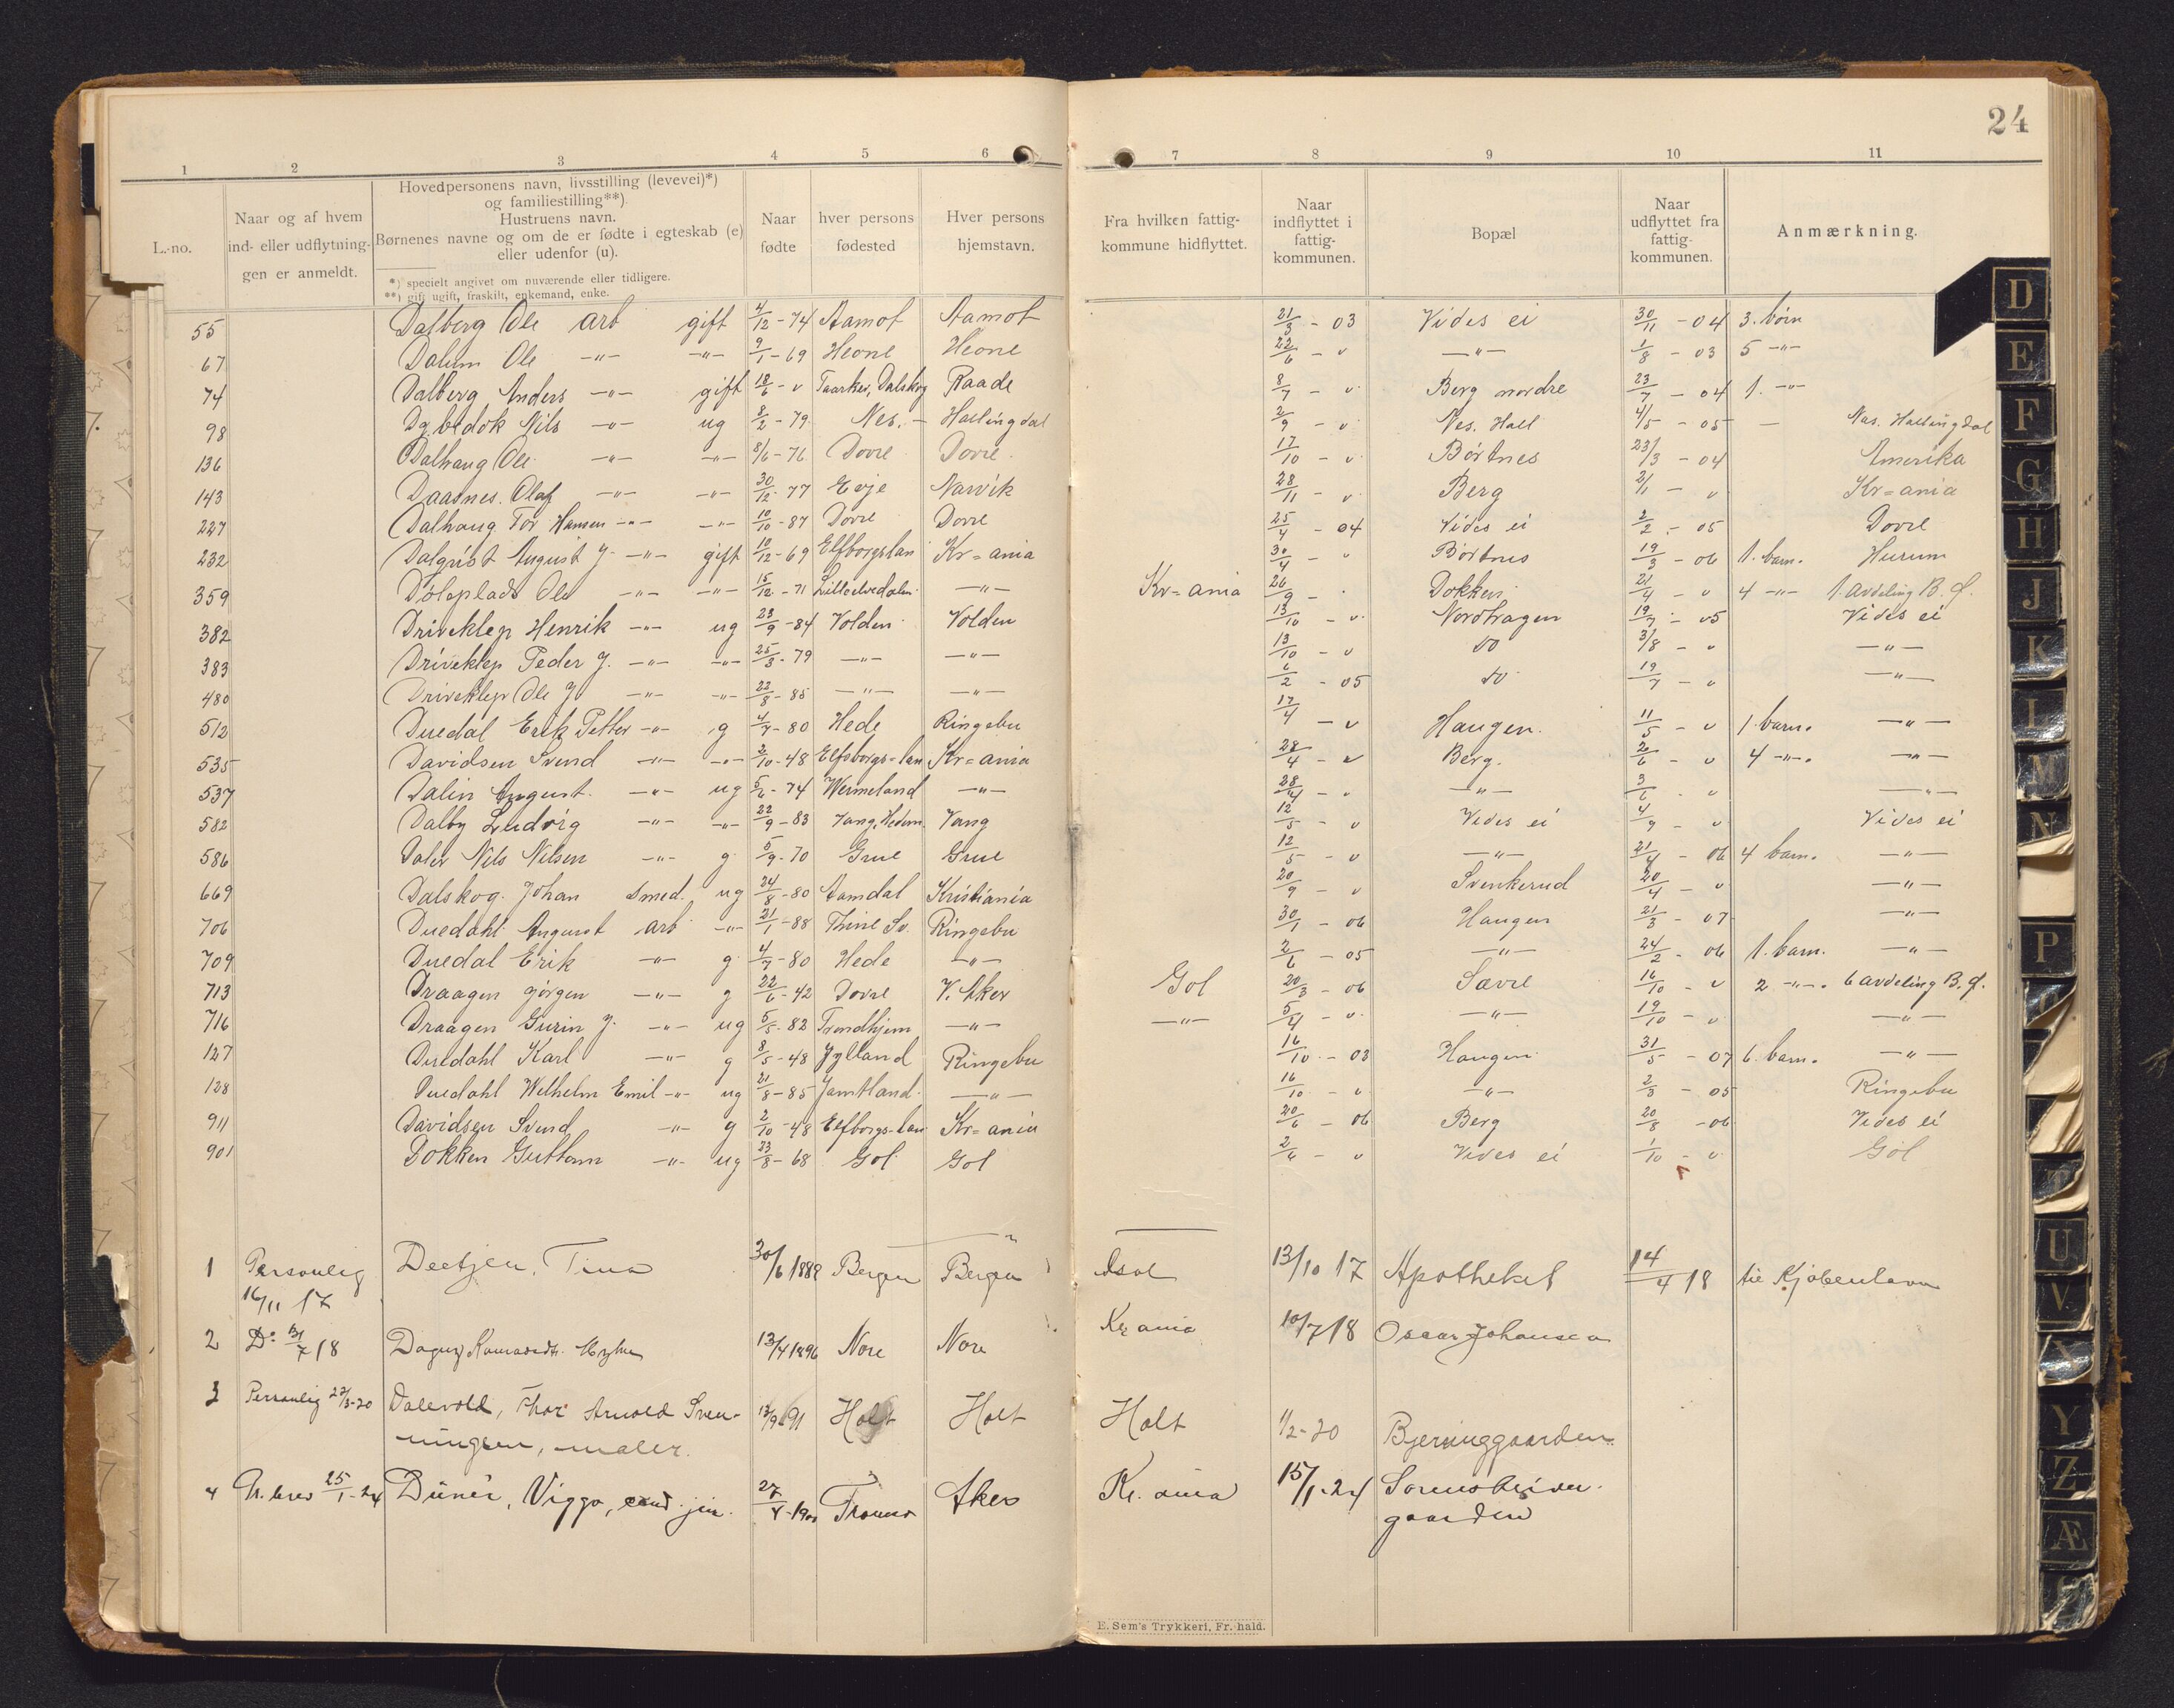 24
1 2 3 4 5 6 7 8 9 10 11
L.-no.
Naar og af hvem
ind- eller udflytnin-
gen er anmeldt.
Hovedpersonens navn, livsstilling (levevei)*)
og familiestilling**)
Hustruens navn.
Børnenes navne og om de er fødte i egteskab (e)
eller udenfor (u).
*) specielt angivet om nuværende eller tidligere.
**) gift ugift, fraskilt, enkemand, enke.
Naar
fødte
hver persons
fødested
Hver persons
hjemstavn.
Fra hvilken fattig-
kommune hidflyttet.
Naar
indflyttet i
fattig-
kommunen.
Bopæl
Naar
udflyttet fra
fattig-
kommunen.
Anmærkning.
55 Dalberg Ole arb gift 4/12 - 74 Aamot Aamot 21/3 - 03 Vides ei 30/11 - 04 3. børn
67 Dalum Ole -"- -"- 9/1 - 69 Heone Heone 22/6 - " -"- 1/8 - 03 5 -"-
74 Dalberg Anders -"- gift 18/6 - " Dalskog Raade 8/7 - " Berg nordre 23/7 - 04 1. -"-
98 Nils -"- ug 8/2 - 79 Nes. - Hallingdal 2/9 - " Nes. Hall 4/5 - 05 - Nes. Hallingdal
136 Dalhaug Ole -"- -"- 8/6 - 76 Dovre Dovre 17/10 - " Børtnes 23/3 - 04 Amerika
143 Daasnes. Olaf -"- -"- 30/12 - 77 Evje Narvik 28/11 - " Berg 2/1 - " Kr=ania
227 Dalhaug Tor Hansen -"- -"- 10/10 - 87 Dovre Dovre 25/4 - 04 Vides ei 2/2 - 05 Dovre
232 Dalqvist August J. -"- gift 10/12 - 69 Elfborgslan Kr=ania 30/4 - " Børtnes 19/3 - 06 1. barn. Hurum
359 Døleplads Ole -"- -"- 15/12 - 71 Lilleelvedalen -"- Kr=ania 26/9 - " Dokken 21/4 - " 4 -"- 1. Avdeling B. J.
382 Driveklep Henrik -"- ug 23/9 - 84 Volden Volden 13/10 - " Nordhagen 19/7 - 05 Vides ei
383 Driveklep Peder J. -"- -"- 25/3 - 79 -"- -"- 13/10 - " do 3/8 - " -"-
480 Driveklep Ole J. -"- -"- 22/8 - 85 -"- -"- 6/2 - 05 do 19/7 - " -"-
512 Duedal Erik Petter -"- g 4/7 - 80 Hede Ringebu 17/4 - " Haugen. 11/5 - " 1 barn. -"-
535 Davidsen Svend -"- -"- 2/10 - 48 Elfsborgs=lan Kr=ania 28/4 - " Berg. 2/6 - " 4 -"-. -"-
537 Dalin August. -"- ug 5/6 - 74 Wermeland -"- 28/4 - " -"- 3/6 - " -"-
582 Dalby Ludvig -"- -"- 22/9 - 83 Vang, Hedem. Vang 12/5 - " Vides ei 4/9 - " Vides ei
586 Daler Nils Nilsen -"- g 5/9 - 70 Grue Grue 12/5 - " -"- 21/4 - 06 4 barn. -"-
669 Dalskog. Johan Smed. ug 24/8 - 80 Aamdal Kristiania 20/9 - " Svenkerud 20/4 - " -"-
706 Duedahl August arb -"- 21/1 - 88 Sv. Ringebu 30/1 - 06 Haugen 21/3 - 07 -"-
709 Duedal Erik -"- g 4/7 - 80 Hede -"- 2/6 - 05 -"- 24/2 - 06 1. barn. -"-
713 Draagen Jørgen -"- g 22/6 - 42 Dovre V. Aker Gol 20/3 - 06 Sævre 16/10 - " 2 -"-. 6 avdeling B. J.
716 Draagen Gurin J. -"- ug 5/5 - 82 Trondhjem -"- -"- 5/4 - " -"- 19/10 - " -"-
127 Duedahl Karl -"- g 8/5 - 48 Jylland Ringebu 16/10 - 03 Haugen 31/5 - 07 6. barn. -"-
128 Duedahl Wilhelm Emil -"- ug 21/8 - 85 Jamtland -"- 16/10 - " -"- 2/3 - 05 Ringebu
911 Davidsen Svend -"- g 2/10 - 48 Elfborgs-lan Kr=ania 20/6 - 06 Berg 20/8 - 06 Vides ei
901 Dokken Guttorm -"- ug 23/8 - 68 Gol Gol 2/6 - " Vides ei 1/10 - " Gol
1 Personlig Deetjen, Tina 30/6 1888 Bergen Bergen 13/10 17 Apotheket 14/4 18 til Kjøbenhavn
16/11 17
2 Do 7 18 Dagny 13/4 1896 Nore Nore Kr ania 10/7 18 Oscar Johansen
3 Personlig 27/3-20 Dalevold, Thor Arnold Sven- 13/9 91 Holt Holt Holt 1/2-20 Bjerringgaarden
ningsen, maler.
4 Pr. brev 25/1-24 Dünér, Viggo, cand. jur. 27/4-1900 Tromsø Aker Kr. ania 15/1-24
gaarden
E. Sem's Trykkeri, Fr.hald.
D
E
F
G
H
J
K
L
M
N
P
T
U
V
X
Y
Z
Æ